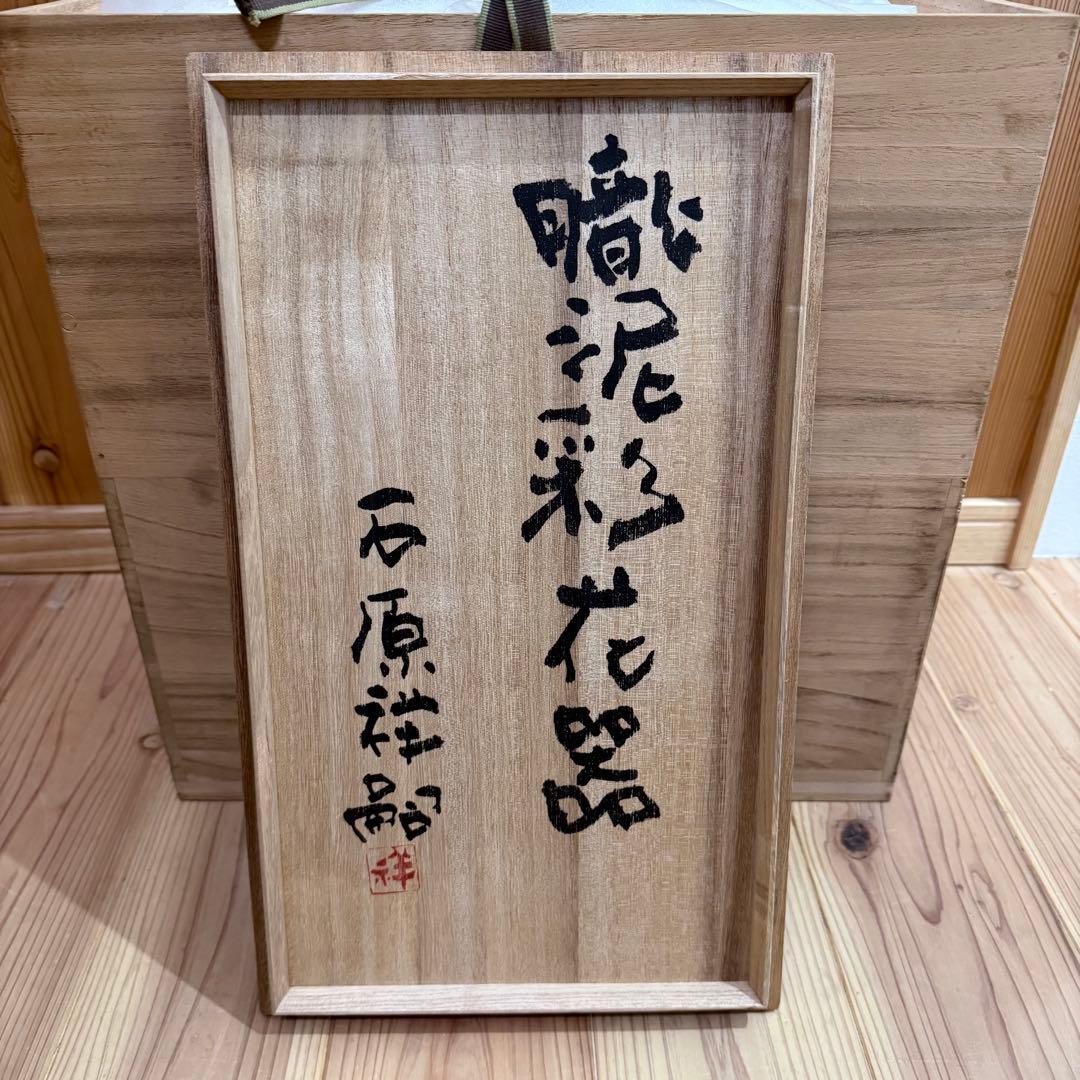 泥彩花器
石原祥嗣
祥